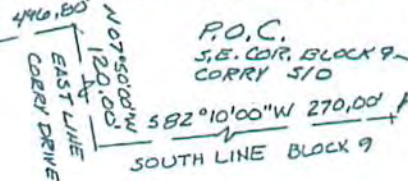 446.80'
N 07°50'00"W
120.00'
EAST LINE
CORRY DRIVE
P.O.C.
S.E. COR. BLOCK 9
CORRY S/D
S 82°10'00"W 270.00'
SOUTH LINE BLOCK 9